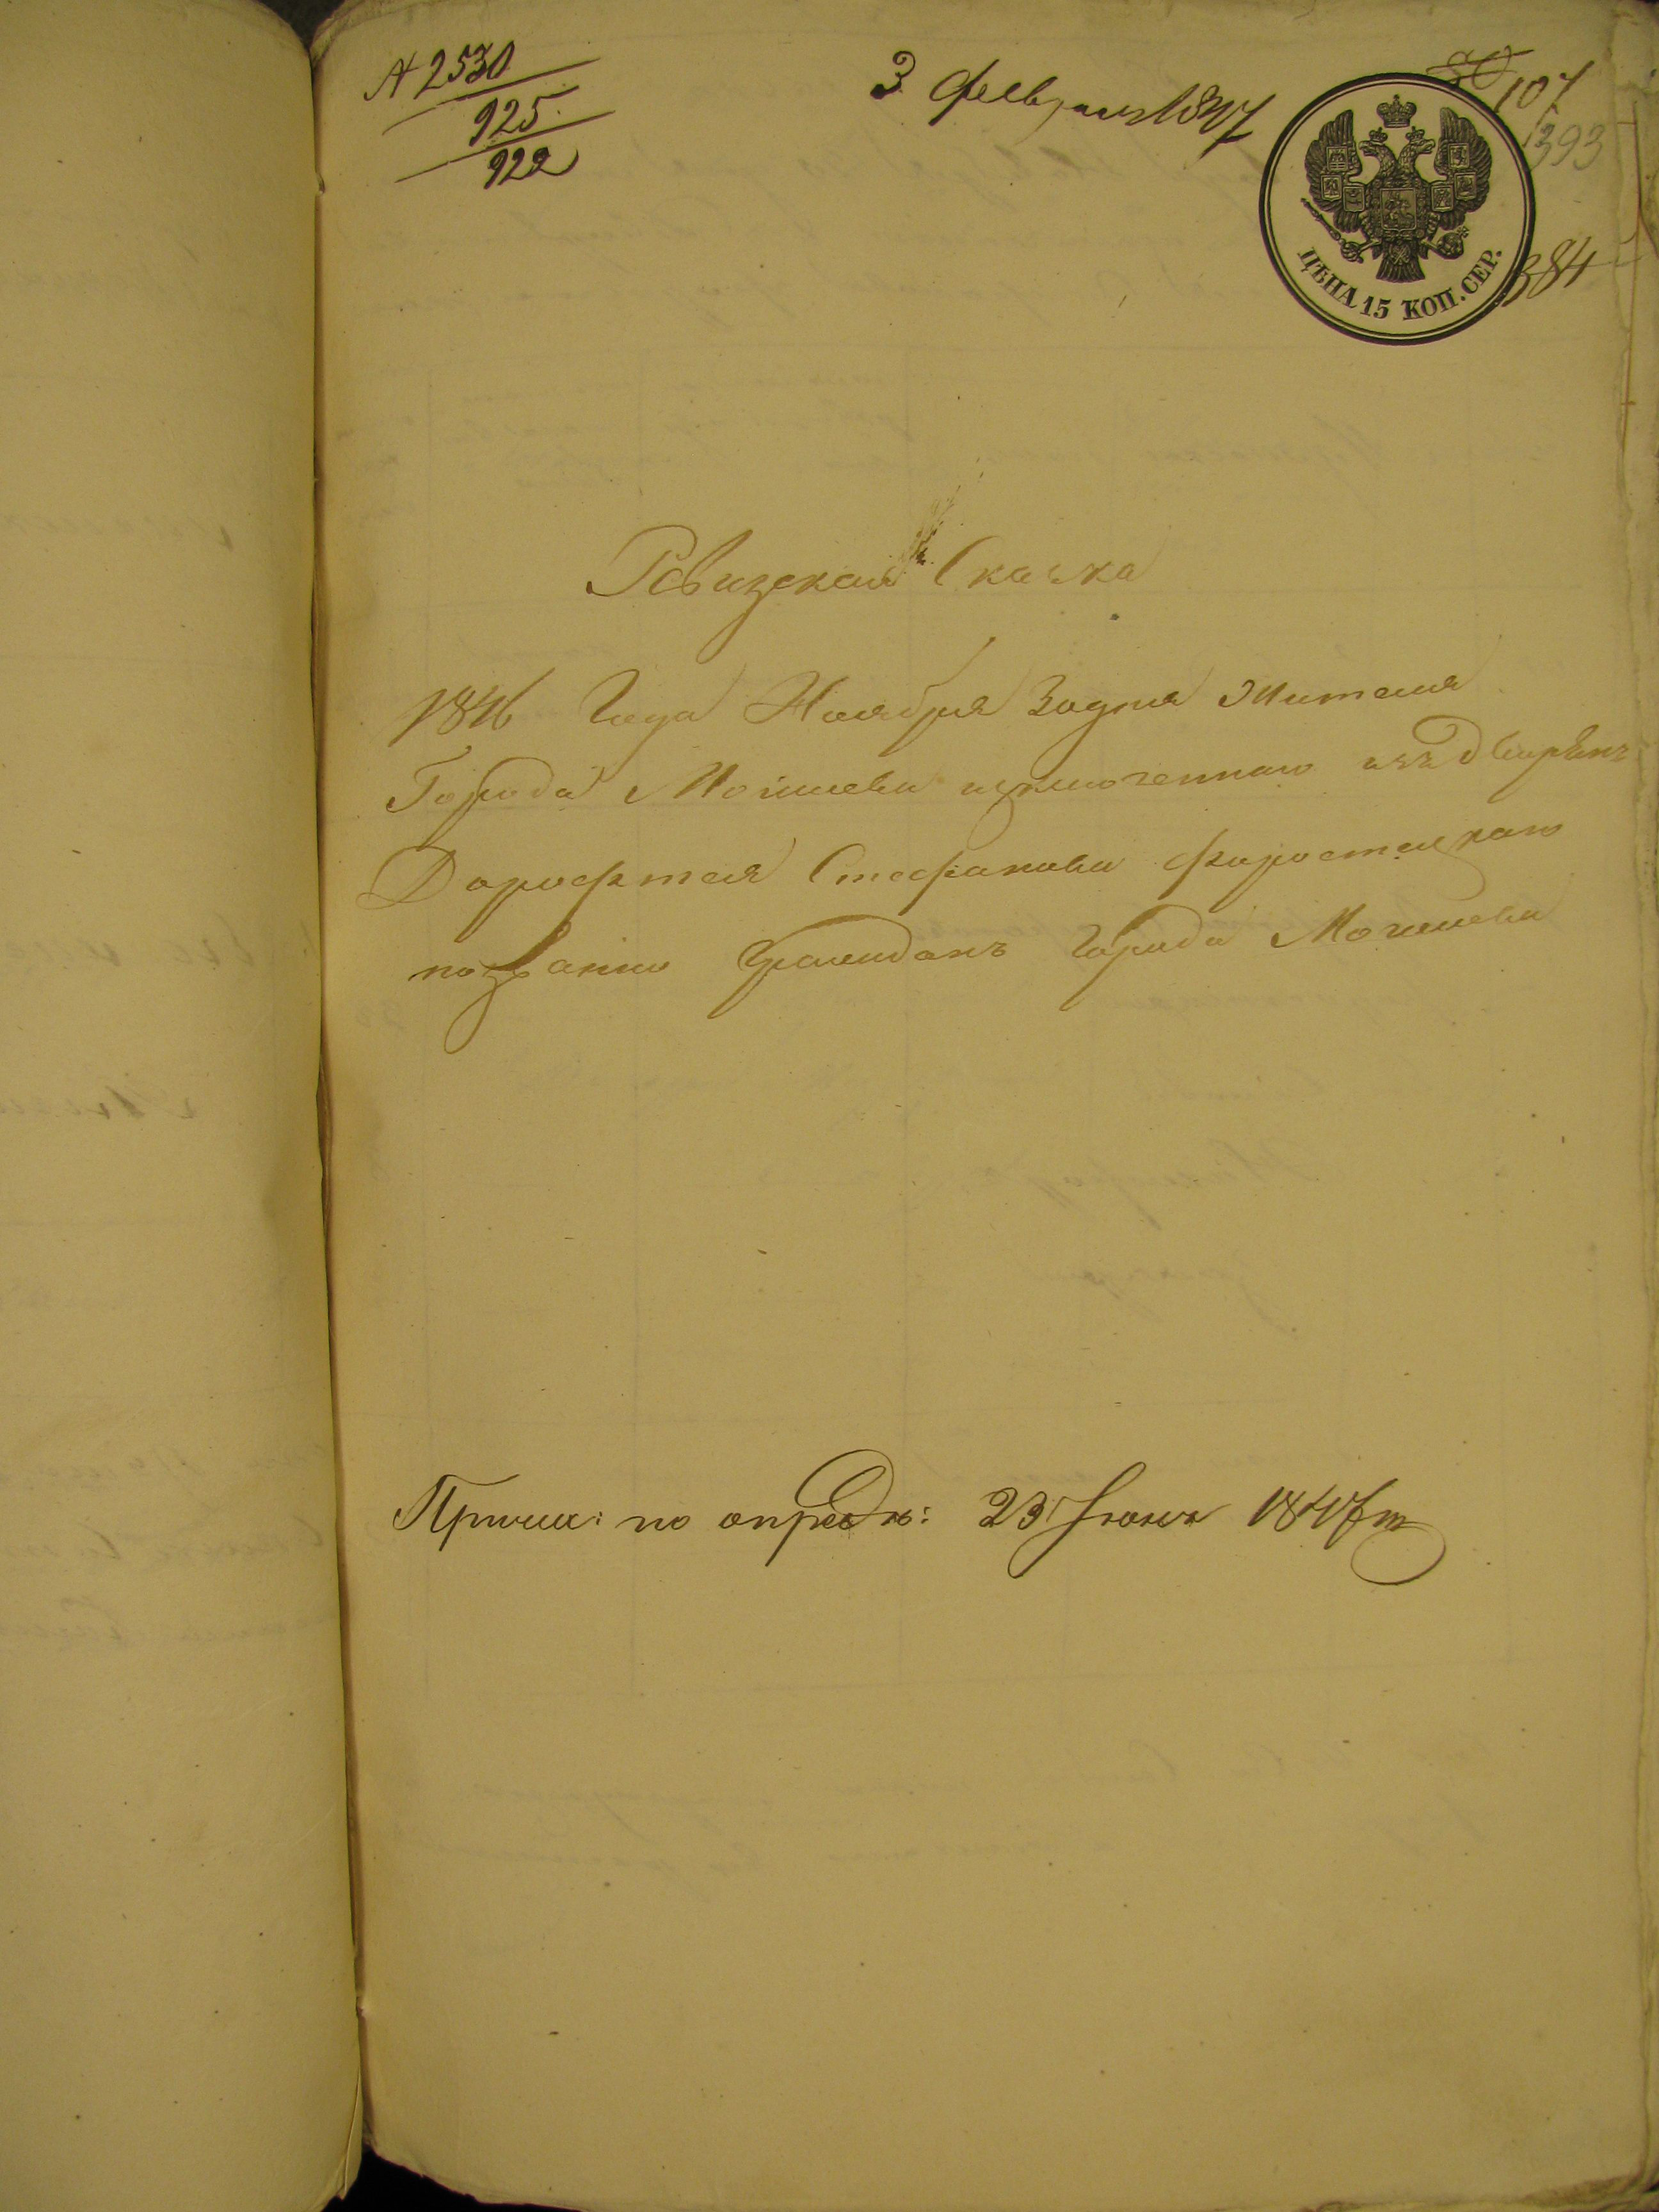 № 2530
925.
922
3 февраля 1847
107
393
384
ЦѢНА 15 КОП. СЕР.
Ревизская Сказка
1846 Года Ноября 30 дня Жителя
Города Могилева изключеннаго изъ дворянъ
Дорофтея Стефанова
по званию Гражданъ Города Могилева
Приня: по опредѣ: 23 Июня 1847